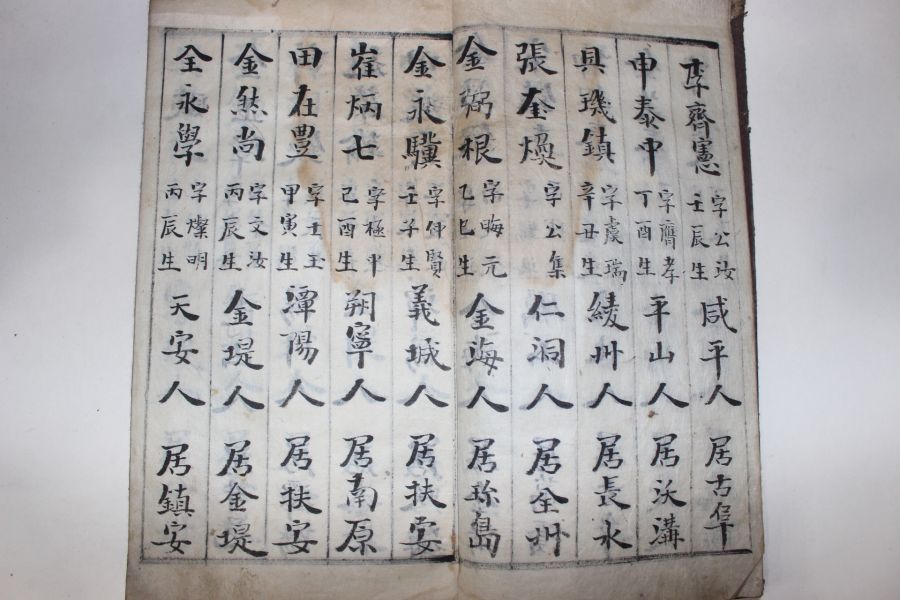 李齊憲 字公汝 壬辰生 咸平人 居古阜
申泰中 字膺孝 丁酉生 平山人 居沃溝
具璣鎮 字虞瑞 辛丑生 綾州人 居長水
張奎煥 字公集 仁洞人 居全州
金弼根 字晦元 乙巳生 金海人 居珍島
金永驥 字仲賢 壬子生 義城人 居扶安
崔炳七 字極平 己酉生 朔寧人 居南原
田在豊 字士玉 甲寅生 潭陽人 居扶安
金然尚 字文汝 丙辰生 金堤人 居金堤
全永學 字燦明 丙辰生 天安人 居鎮安